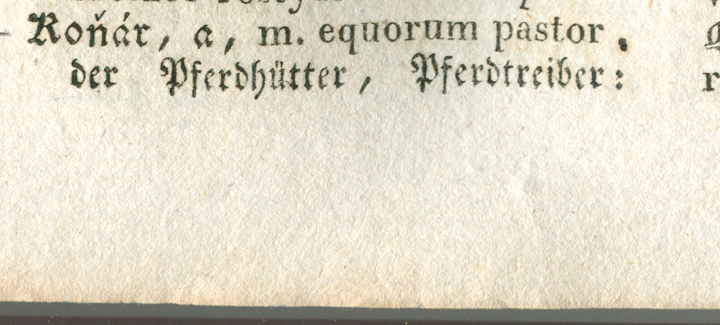 Koňár, a, m. equorum pastor,
der Pferdhütter, Pferdtreiber: